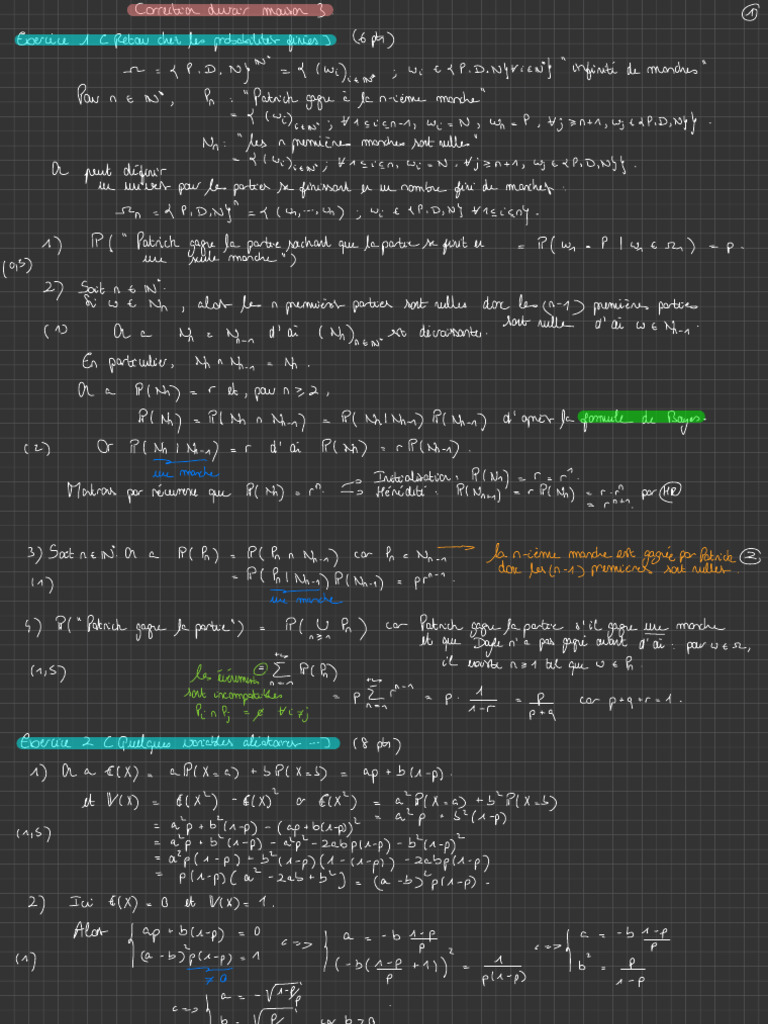 Correction devoir maison 3
①
Exercice 1 (Retour chez les probabilités finies) (6 pts)
Ω = {P, D, N}^{ℕ*} = {(ω_i)_{i∈ℕ*} ; ω_i ∈ {P,D,N} ∀i∈ℕ*} "infinité de manches"
Pour n ∈ ℕ*, P_n : "Patrick gagne à la n-ième manche"
= {(ω_i)_{i∈ℕ*} ; ∀ 1≤i≤n-1, ω_i = N, ω_n = P, ∀j≥n+1, ω_j ∈ {P,D,N}}.
N_n : "les n premières manches sont nulles"
= {(ω_i)_{i∈ℕ*} ; ∀ 1≤i≤n, ω_i = N, ∀j≥n+1, ω_j ∈ {P,D,N}}.
On peut définir
un univers pour les parties se finissant en un nombre fini de manches :
Ω_n = {P,D,N}^n = {(ω_1, ..., ω_n) ; ω_i ∈ {P,D,N} ∀1≤i≤n}.
1) ℙ("Patrick gagne la partie sachant que la partie se finit en = ℙ(ω_1 = P | ω_1 ∈ Ω_1) = p.
une seule manche")
(0,5)
2) Soit n ∈ ℕ*.
Si ω ∈ N_n, alors les n premières parties sont nulles donc les (n-1) premières parties
sont nulles d'où ω ∈ N_{n-1}.
(1) On a N_n ⊂ N_{n-1} d'où (N_n)_{n∈ℕ*} est décroissante.
En particulier, N_n ∩ N_{n-1} = N_n.
On a ℙ(N_1) = r et, pour n ≥ 2,
ℙ(N_n) = ℙ(N_n ∩ N_{n-1}) = ℙ(N_n | N_{n-1}) ℙ(N_{n-1}) d'après la formule de Bayes.
(2) Or ℙ(N_n | N_{n-1}) = r d'où ℙ(N_n) = r ℙ(N_{n-1}).
une manche
Montrons par récurrence que ℙ(N_n) = r^n
Initialisation : ℙ(N_1) = r = r^1.
Hérédité : ℙ(N_{n+1}) = r ℙ(N_n) = r · r^n par HR
= r^{n+1}
3) Soit n ∈ ℕ*. On a ℙ(P_n) = ℙ(P_n ∩ N_{n-1}) car P_n ⊂ N_{n-1} → la n-ième manche est gagnée par Patrick ②
donc les (n-1) premières sont nulles.
(1) = ℙ(P_n | N_{n-1}) ℙ(N_{n-1}) = p r^{n-1}.
une manche
4) ℙ("Patrick gagne la partie") = ℙ(∪_{n≥1} P_n) car Patrick gagne la partie s'il gagne une manche
et que Doyle n'a pas gagné avant d'où : pour ω ∈ Ω,
il existe n≥1 tel que ω ∈ P_n.
(1,5) = Σ_{n=1}^{+∞} ℙ(P_n)
les évènements
sont incompatibles
P_i ∩ P_j = ∅ ∀i≠j
= p Σ_{n=1}^{+∞} r^{n-1} = p · 1/(1-r) = p/(p+q) car p+q+r = 1.
Exercice 2 (Quelques variables aléatoires ...) (8 pts)
1) On a E(X) = a ℙ(X=a) + b ℙ(X=b) = ap + b(1-p).
et V(X) = E(X²) - E(X)² or E(X²) = a² ℙ(X=a) + b² ℙ(X=b)
= a²p + b²(1-p)
(1,5) = a²p + b²(1-p) - (ap+b(1-p))²
= a²p + b²(1-p) - a²p² - 2abp(1-p) - b²(1-p)²
= a²p(1-p) + b²(1-p)(1-(1-p)) - 2abp(1-p)
= p(1-p)(a² - 2ab + b²) = (a-b)² p(1-p).
2) Ici E(X) = 0 et V(X) = 1.
Alors { ap + b(1-p) = 0 <=> { a = -b (1-p)/p <=> { a = -b (1-p)/p
(1) { (a-b)² p(1-p) = 1 { (-b((1-p)/p + 1))² = 1/(p(1-p)) { b² = p/(1-p)
≠ 0
<=> { a = -√((1-p)/p)